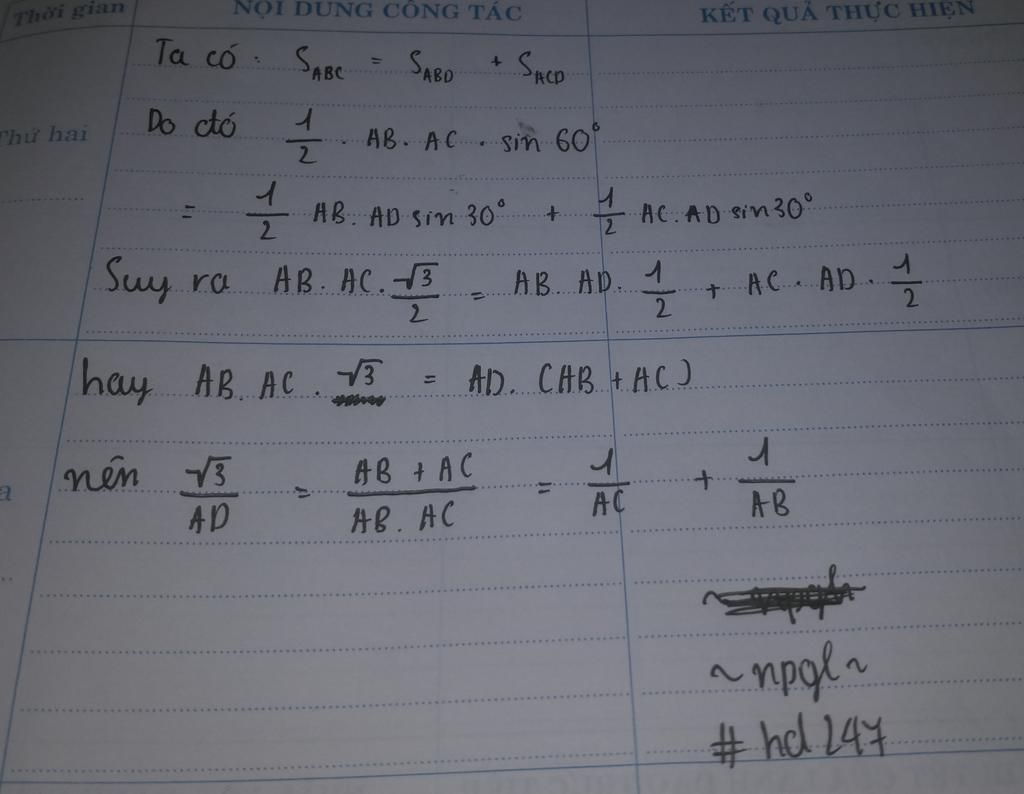 Thời gian NỘI DUNG CÔNG TÁC KẾT QUẢ THỰC HIỆN
Ta có: S_ABC = S_ABD + S_ACD
Thứ hai
Do đó 1/2 . AB. AC . sin 60°
= 1/2 AB. AD sin 30° + 1/2 AC. AD sin 30°
Suy ra AB. AC. √3/2 = AB. AD. 1/2 + AC. AD. 1/2
hay AB. AC. √3 = AD. (AB + AC)
nên √3/AD = (AB + AC)/(AB. AC) = 1/AC + 1/AB
~npql~
# hd 247